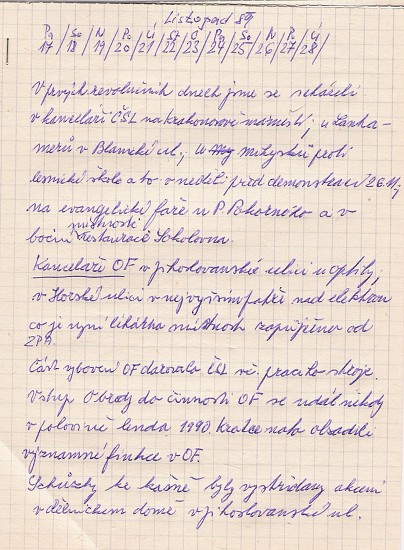 Listopad 89
Pá / So / N / Po / Ú / St / Č / Pá / So / N / Po / Ú /
17 / 18 / 19 / 20 / 21 / 22 / 23 / 24 / 25 / 26 / 27 / 28 /
V prvých revolučních dnech jsme se scházeli
v kanceláři ČSL na krakonošově náměstí, u Lankamerů
v Blanické ul., u Mitysků proti
lesnické škole a to v neděli před demonstrací 26.11.,
na evangelické faře u P. Pokorného a v
boční místnosti restaurace Sokolovna.
Kanceláře OF v jihoslovanské ulici u optiky,
v Horské ulici v nejvyšším patře nad elektrou
co je nyní lékárna místnost zapůjčeno od
ZPA.
Část vybavení OF darovala ČSL vč. psacího stroje.
Vstup Obrody do činnosti OF se udál někdy
v polovině ledna 1990 krátce nato obsadili
významné funkce v OF.
Schůzky ke kašně byly vystřídány akcemi
v dělnickém domě v jihoslovanské ul.